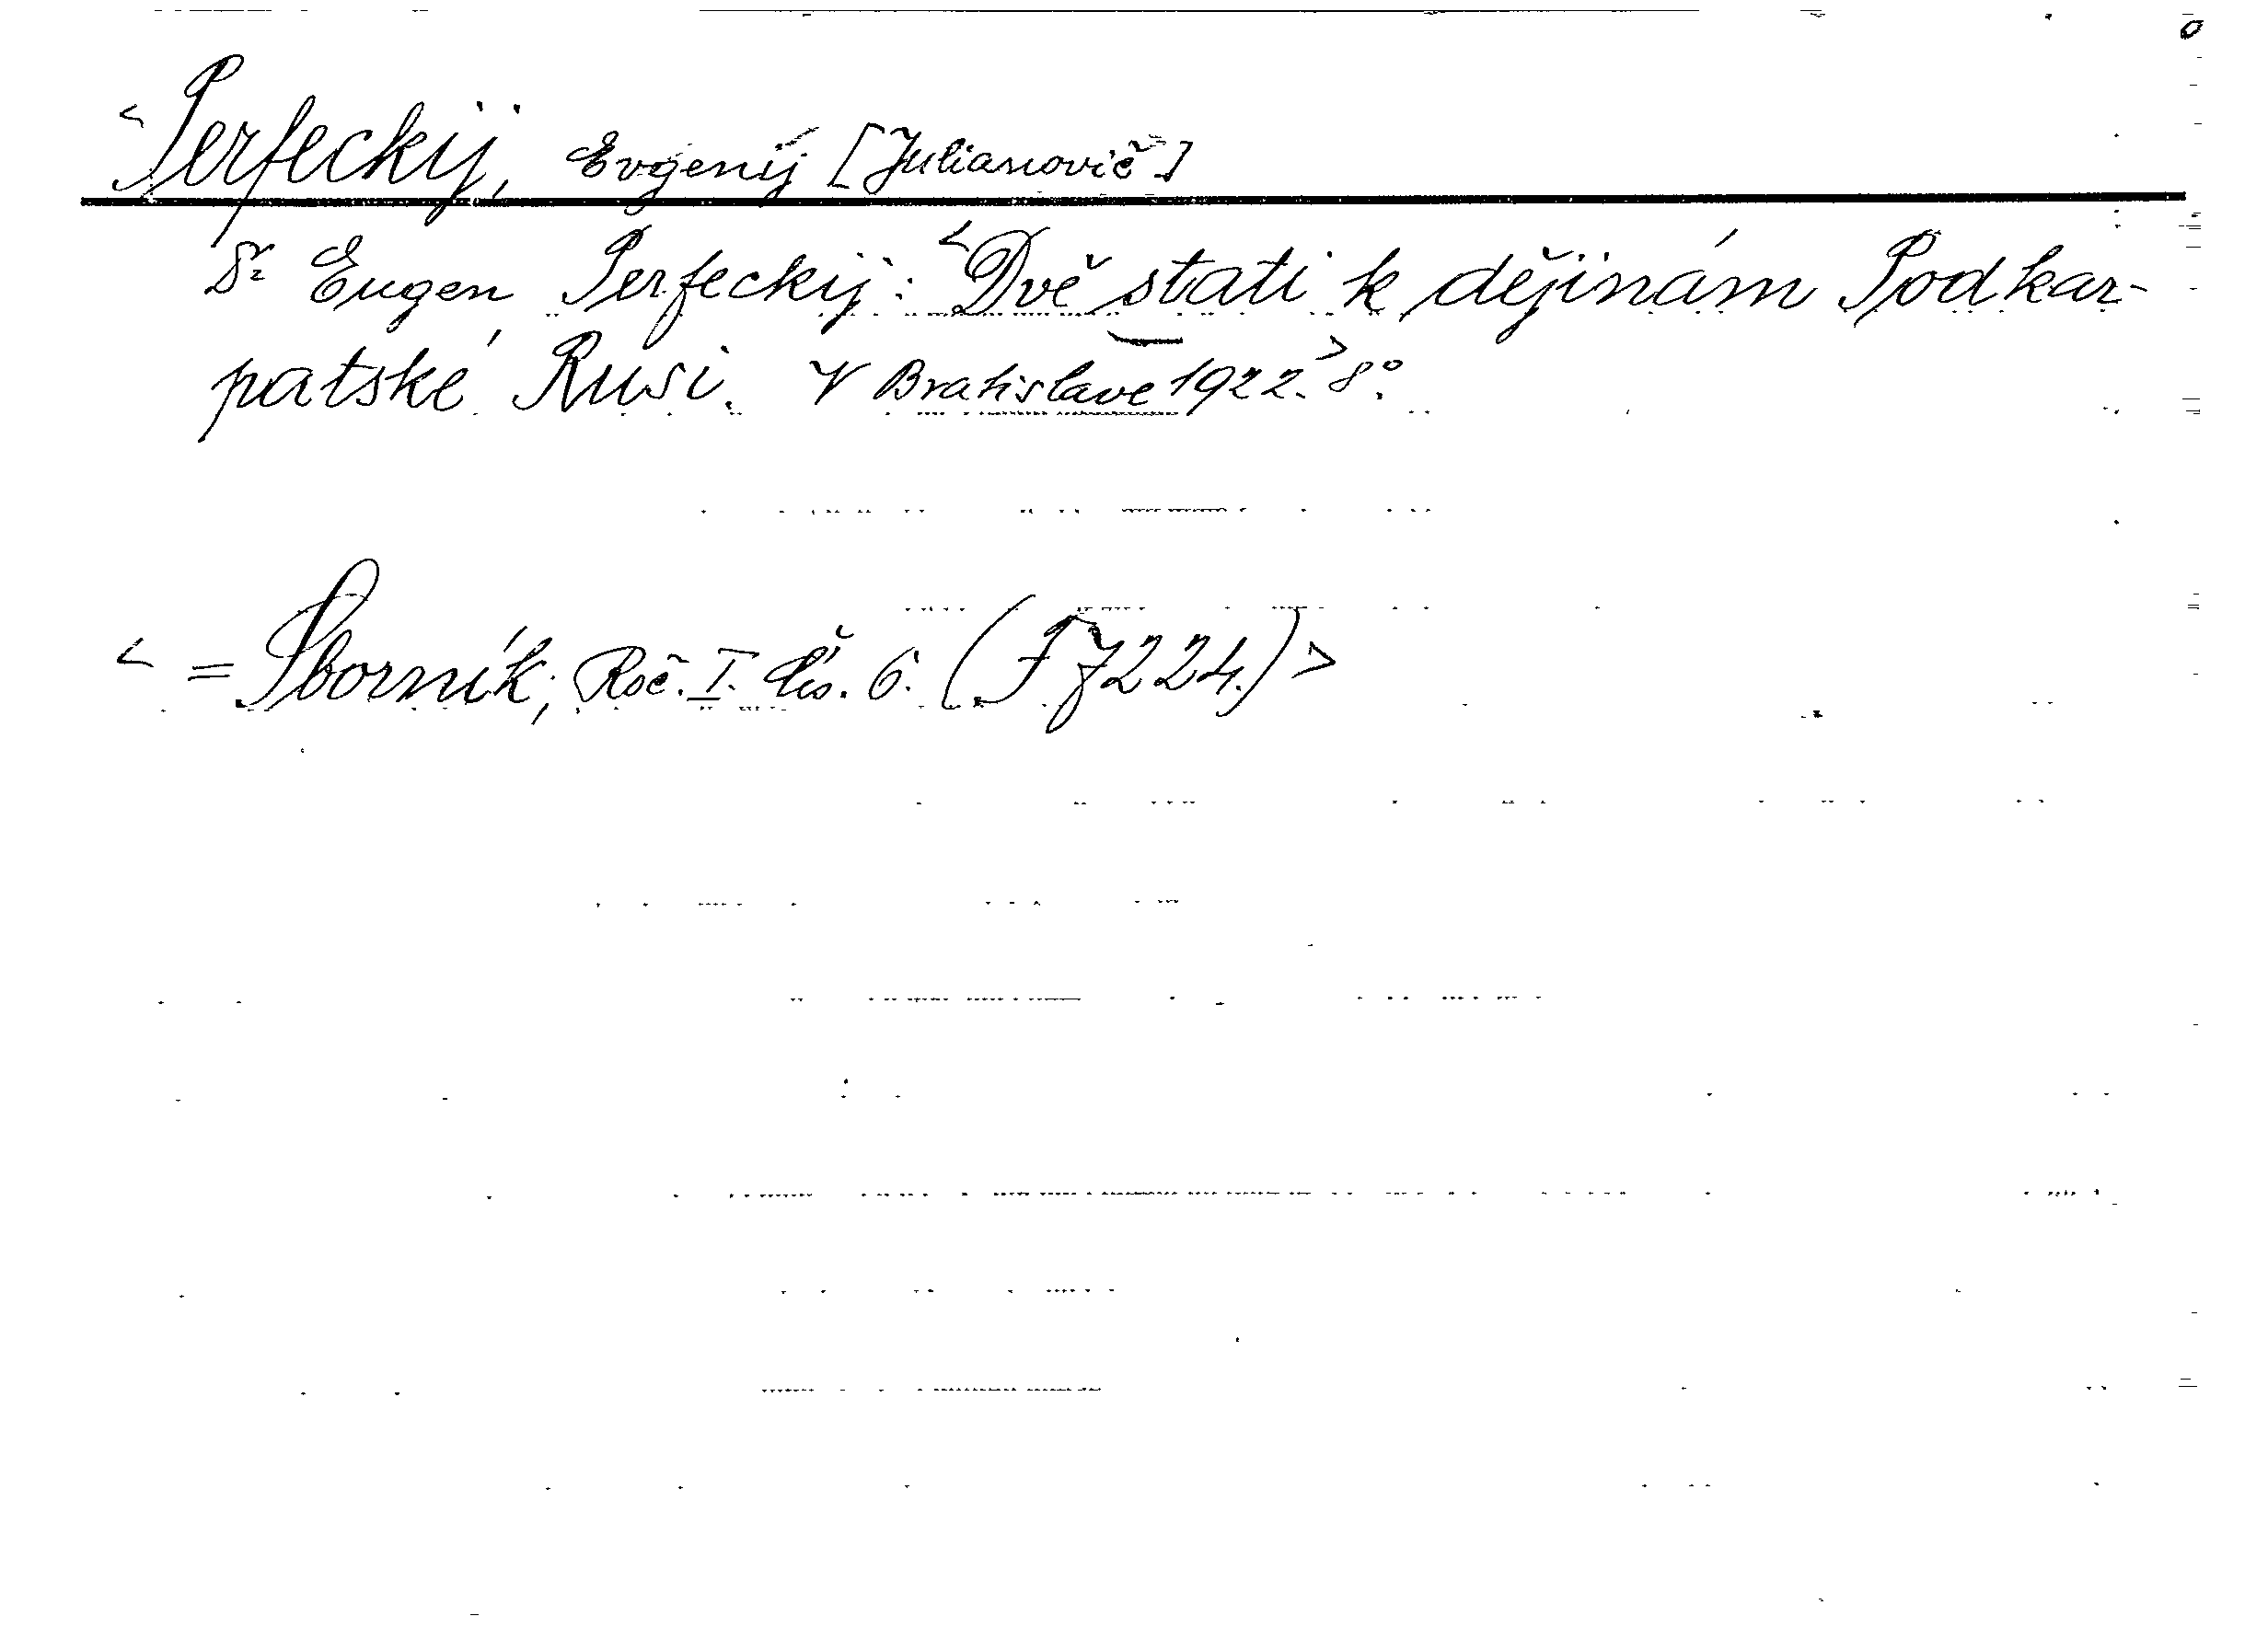 <Perfeckij, Evgenij [Julianovič]
Dr Eugen Perfeckij: <Dvě stati k dějinám Podkar-
patské Rusi. V Bratislave 1922.> 8°.
< = Sborník, Roč. I. čís. 6. (F 7224.) >